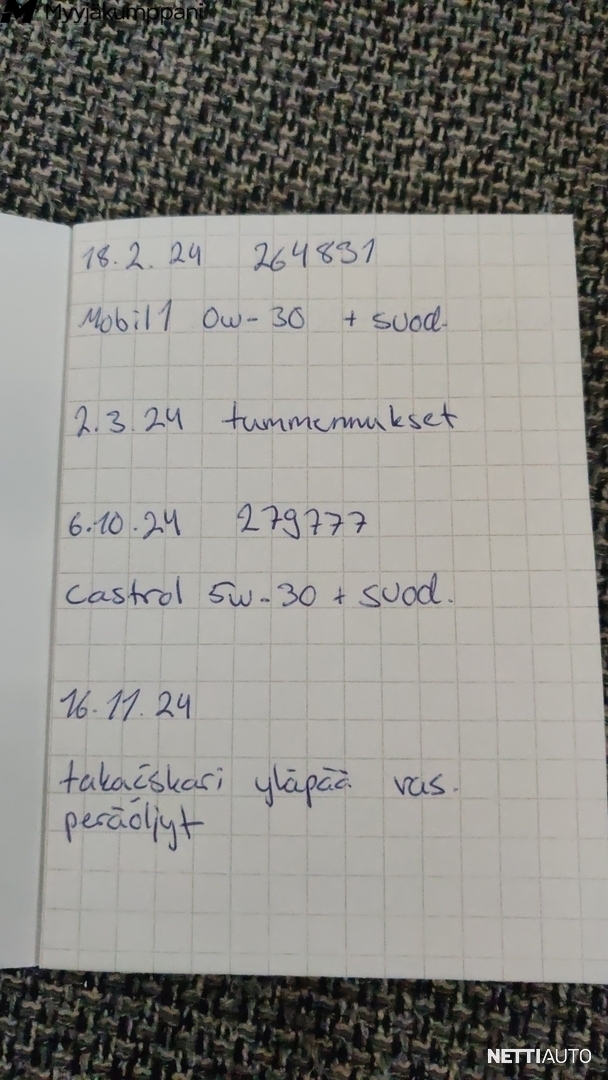 Myyjäkumppani
18.2.24 264831
Mobil1 0w-30 + suod.
2.3.24 tummennukset
6.10.24 279777
Castrol 5w-30 + suod.
16.11.24
takaiskari yläpää vas.
peräöljyt
NETTIAUTO